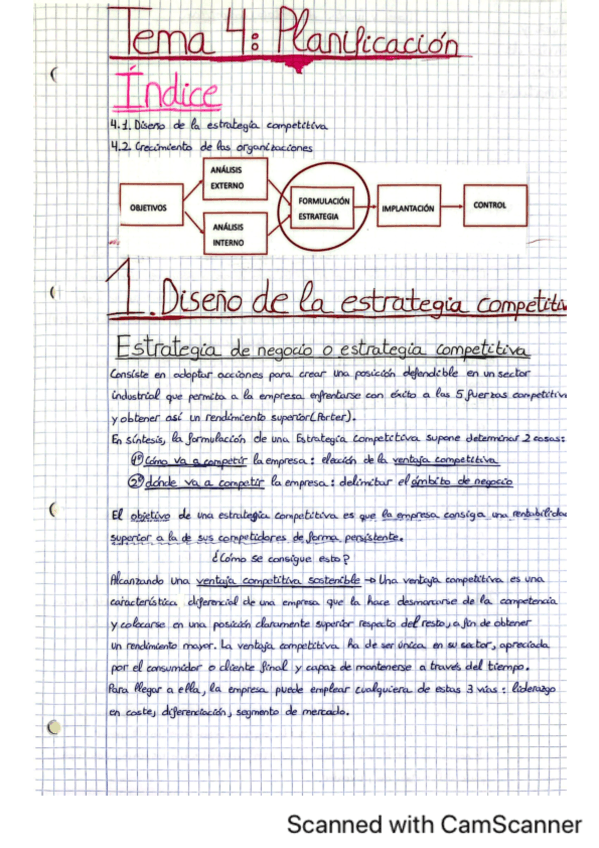 Tema 4: Planificación
Índice
4.1. Diseño de la estrategia competitiva
4.2. Crecimiento de las organizaciones
OBJETIVOS
ANÁLISIS
EXTERNO
ANÁLISIS
INTERNO
FORMULACIÓN
ESTRATEGIA
IMPLANTACIÓN
CONTROL
1. Diseño de la estrategia competitiv
Estrategia de negocio o estrategia competitiva
Consiste en adoptar acciones para crear una posición defendible en un sector
industrial que permita a la empresa enfrentarse con éxito a las 5 fuerzas competitiv
y obtener así un rendimiento superior (Porter).
En síntesis, la formulación de una Estrategia Competitiva supone determinar 2 cosas:
1º Cómo va a competir la empresa: elección de la ventaja competitiva
2º dónde va a competir la empresa: delimitar el ámbito de negocio
El objetivo de una estrategia competitiva es que la empresa consiga una rentabilidad
superior a la de sus competidores de forma persistente.
¿Cómo se consigue esto?
Alcanzando una ventaja competitiva sostenible → Una ventaja competitiva es una
característica diferencial de una empresa que la hace desmarcarse de la competencia
y colocarse en una posición claramente superior respecto del resto, a fin de obtener
un rendimiento mayor. La ventaja competitiva ha de ser única en su sector, apreciada
por el consumidor o cliente final y capaz de mantenerse a través del tiempo.
Para llegar a ella, la empresa puede emplear cualquiera de estas 3 vías: liderazgo
en costes, diferenciación, segmento de mercado.
Scanned with CamScanner